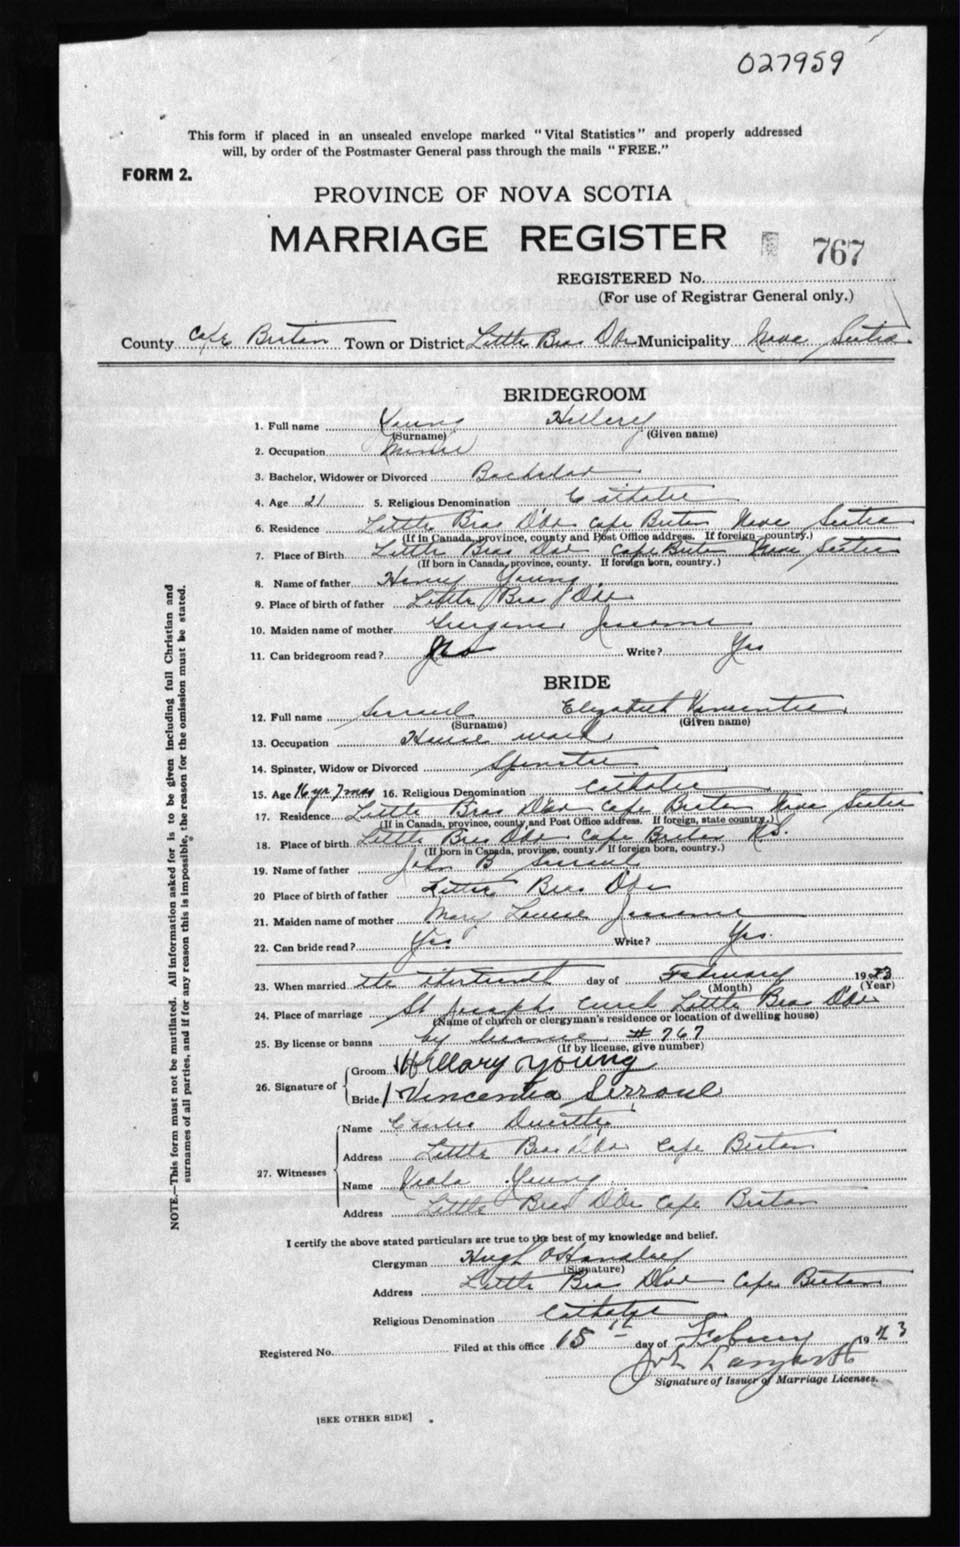 027959
This form if placed in an unsealed envelope marked "Vital Statistics" and properly addressed
will, by order of the Postmaster General pass through the mails "FREE."
FORM 2.
PROVINCE OF NOVA SCOTIA
MARRIAGE REGISTER
767
REGISTERED No.
(For use of Registrar General only.)
County Cape Breton Town or District Little Bras D'Or Municipality Nova Scotia
BRIDEGROOM
1. Full name Young Hillery
(Surname) (Given name)
2. Occupation Miner
3. Bachelor, Widower or Divorced Bachelor
4. Age 21 5. Religious Denomination Catholic
6. Residence Little Bras D'Or Cape Breton Nova Scotia
(If in Canada, province, county and Post Office address. If foreign country.)
7. Place of Birth Little Bras Dor Cape Breton Nova Scotia
(If born in Canada, province, county. If foreign born, country.)
8. Name of father Henry Young
9. Place of birth of father Little Bras D'Or
10. Maiden name of mother Jessome
11. Can bridegroom read? Yes Write? Yes
BRIDE
12. Full name Serroul Elizabeth
(Surname) (Given name)
13. Occupation House maid
14. Spinster, Widow or Divorced Spinster
15. Age 16 yr 7 mos 16. Religious Denomination Catholic
17. Residence Little Bras D'Or Cape Breton Nova Scotia
(If in Canada, province, county, and Post Office address. If foreign, state country.)
18. Place of birth Little Bras D'Or Cape Breton N.S.
(If born in Canada, province, county. If foreign born, country.)
19. Name of father John B Serroul
20 Place of birth of father Little Bras D'Or
21. Maiden name of mother Mary Louise Jessome
22. Can bride read? Yes Write? Yes.
23. When married the thirteenth day of February 1923
(Month) (Year)
24. Place of marriage St Josephs Little Bras D'Or
(Name of church or clergyman's residence or location of dwelling house)
25. By license or banns by license # 767
(If by license, give number)
26. Signature of
Groom Hillary Young
Bride Vincentia Serroul
27. Witnesses
Name Charles
Address Little Bras d'Or Cape Breton
Name Young
Address Little Bras D'Or Cape Breton
I certify the above stated particulars are true to the best of my knowledge and belief.
Clergyman Hugh
(Signature)
Address Little Bras D'Or Cape Breton
Religious Denomination Catholic
Registered No. Filed at this office 15th day of February 1923
Signature of Issuer of Marriage Licenses.
[SEE OTHER SIDE]
NOTE.—This form must not be mutilated. All information asked for is to be given including full Christian and
surnames of all parties, and if for any reason this is impossible, the reason for the omission must be stated.